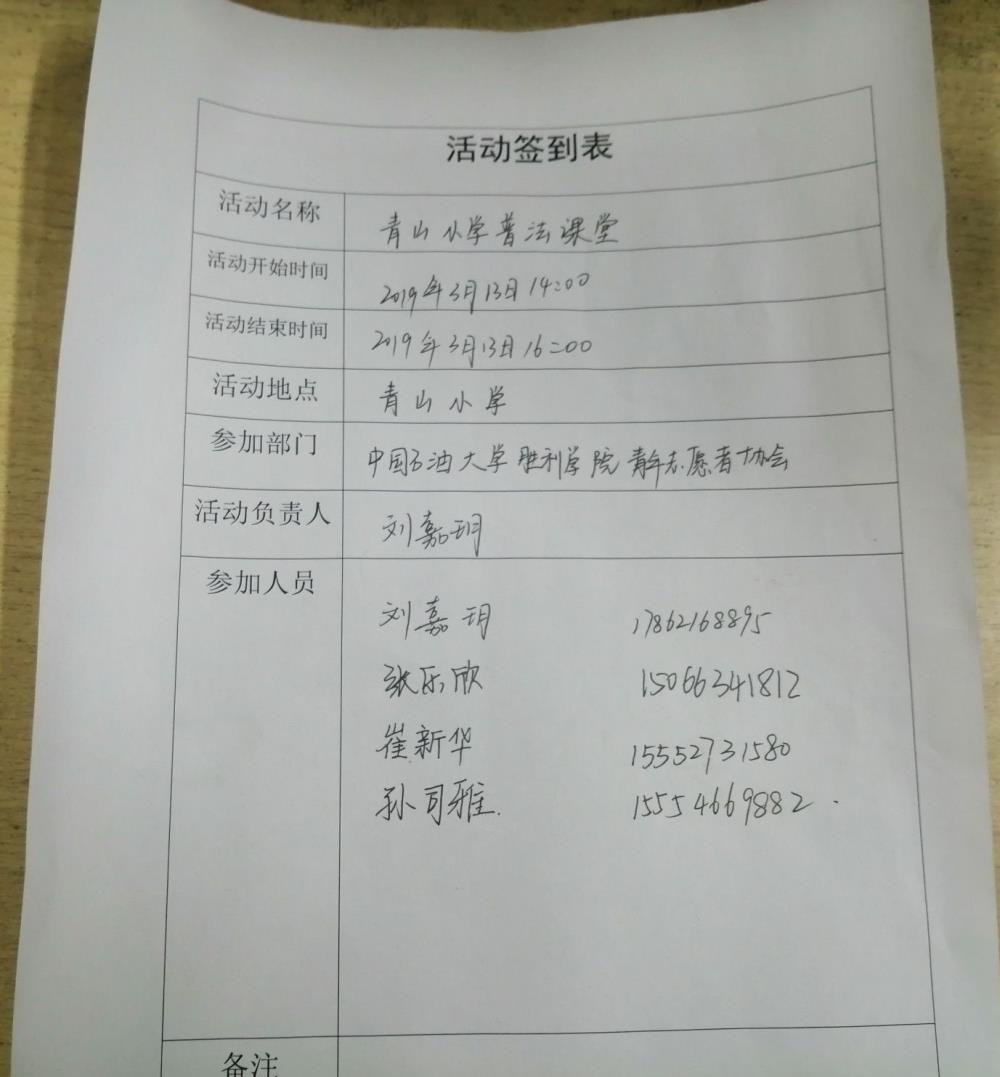 活动签到表
活动名称 青山小学普法课堂
活动开始时间 2019年3月13日14:00
活动结束时间 2019年3月13日16:00
活动地点 青山小学
参加部门 中国石油大学胜利学院青年志愿者协会
活动负责人 刘嘉玥
参加人员
刘嘉玥 17862168895
张乐欣 15066341812
崔新华 15552731580
孙司雅. 15554669882.
备注